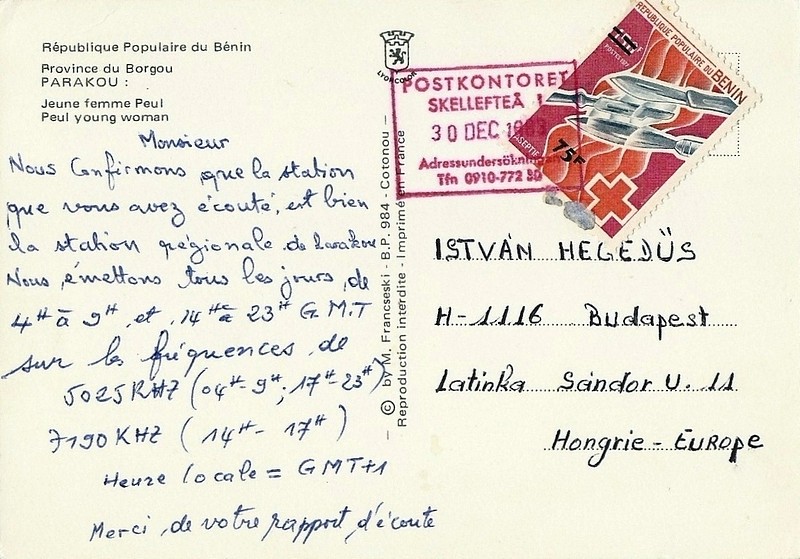 République Populaire du Bénin
Province du Borgou
PARAKOU :
Jeune femme Peul
Peul young woman
Monsieur
Nous Confirmons que la station
que vous avez écouté, est bien
la station régionale de Parakou
Nous émettons tous les jours de
4H à 9H et 14H à 23H G.M.T
sur les fréquences de
5025 KHZ (04H-9H; 17H-23H)
7190 KHZ (14H- 17H)
Heure locale = GMT+1
Merci de votre rapport d'écoute
LYONCOLOR
© by M. Franceski - B.P. 984 - Cotonou -
Reproduction interdite - Imprimé en France
POSTKONTORET
SKELLEFTEÅ 1
30 DEC
Adressundersökning
Tfn 0910-772 80
REPUBLIQUE POPULAIRE DU BENIN
75F
ISTVÁN HEGEDÜS
H-1116 Budapest
Latinka Sándor U. 11
Hongrie - EUROPE